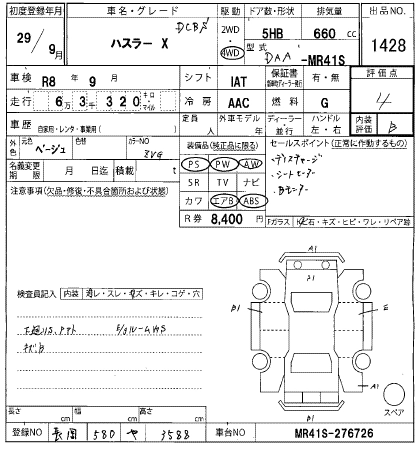 初度登録年月 車名・グレード 駆動 ドア数・形状 排気量 出品NO.
29/9月 ハスラー X DCBS 2WD 4WD 5HB 660 cc 1428
型式 DAA -MR41S
車検 R8年 9月 シフト IAT 保証書 有・無 評価点
走行 6万 3千 320 キロ・マイル 冷房 AAC 燃料 G 4
車歴 自家用・レンタ・事業用( ) 定員 人 外車モデル 年 ディーラー 並行 ハンドル 左・右 内装評価 B
外色 元色 ベージュ 色替 カラーNO ZVG 装備品(純正品に限る) セールスポイント(正常に作動するもの)
名義変更期限 月 日迄 積載 t PS PW AW ・ディスチャージ
注意事項(欠品・修復・不具合箇所および状態) SR TV ナビ ・シートヒーター
カワ エアB ABS
R券 8,400円 Fガラス 石・キズ・ヒビ・ワレ・リペア跡
A1
P1
検査員記入 内装 ・スレ・キズ・キレ・コゲ・穴
P1 E
キズB
A1
スペア
B1
長さ cm 幅 cm 高さ cm
登録NO 長岡 580 や 3588 車台NO MR41S-276726